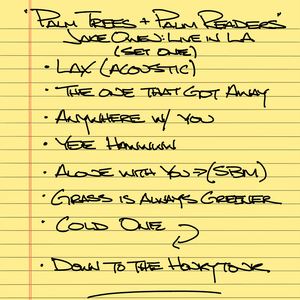 "Palm Trees + Palm Readers"
Jake Owen: Live in LA
(Set One)
· LAX (Acoustic)
· The One That Got Away
· Anywhere w/ You
· Yee Hawwww
· Alone with You => (SBM)
· Grass is Always Greener
· Cold One
· Down to the Honkytonk